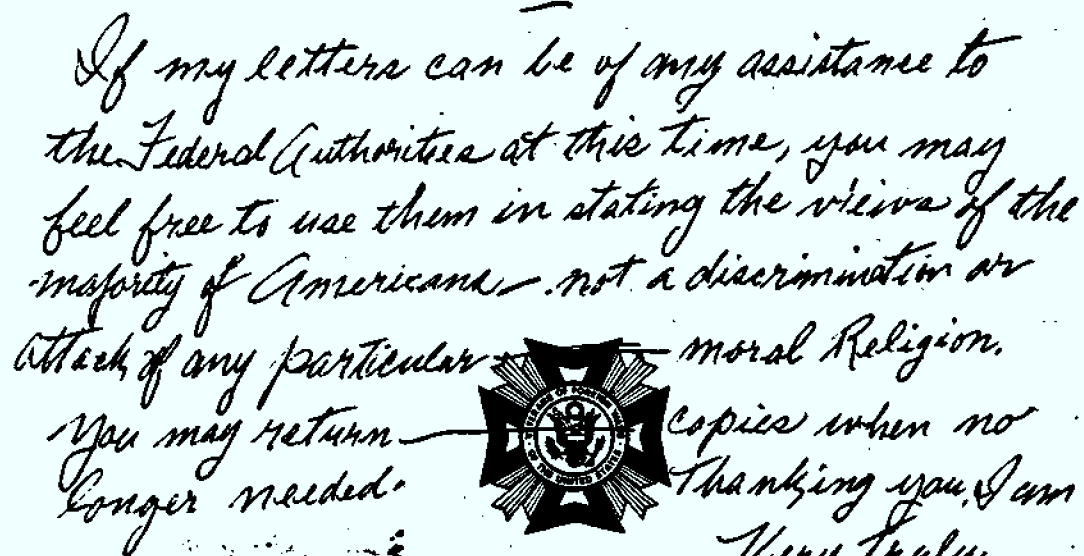 If my letters can be of any assistance to
the Federal Authorities at this time, you may
feel free to use them in stating the views of the
majority of Americans — not a discrimination or
attack of any particular — moral Religion.
You may return — copies when no
longer needed. Thanking you, I am
Very Truly